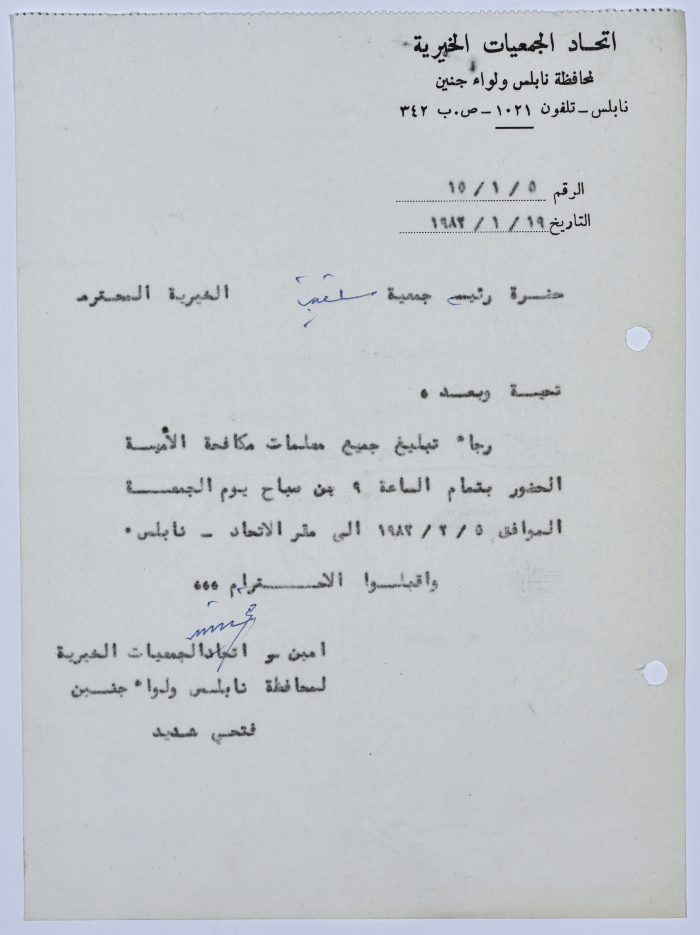 اتحاد الجمعيات الخيرية
لمحافظة نابلس ولواء جنين
نابلس – تلفون ١٠٢١ – ص.ب ٣٤٢
الرقم ١٥ / ١ / ٥
التاريخ ١٩ / ١ / ١٩٨٢
حضرة رئيس جمعية الخيرية المحترم
تحية وبعد ،
رجاء تبليغ جميع معلمات مكافحة الأمية
الحضور بتمام الساعة ٩ من صباح يوم الجمعة
الموافق ٥ / ٢ / ١٩٨٢ الى مقر الاتحاد – نابلس .
واقبلوا الاحترام ،،،
امين سر اتحاد الجمعيات الخيرية
لمحافظة نابلس ولواء جنين
فتحي شديد